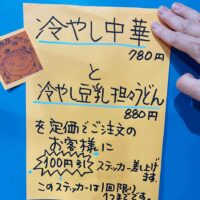 冷やし中華
780円
と
冷やし豆乳担々うどん
880円
を定価でご注文の
お客様に
100円引き
ステッカー差し上げ
ます。
このステッカーは1回限り
1つまでです。